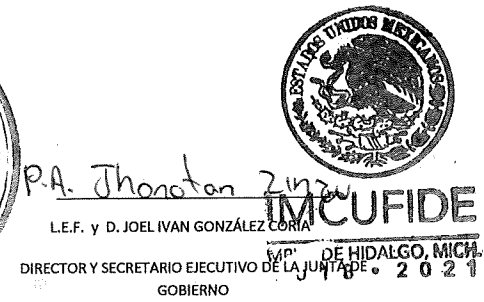 ESTADOS UNIDOS MEXICANOS
P.A. Jhonotan
IMCUFIDE
L.E.F. y D. JOEL IVAN GONZÁLEZ CORIA
DE HIDALGO, MICH.
DIRECTOR Y SECRETARIO EJECUTIVO DE LA JUNTA DE
2021
GOBIERNO